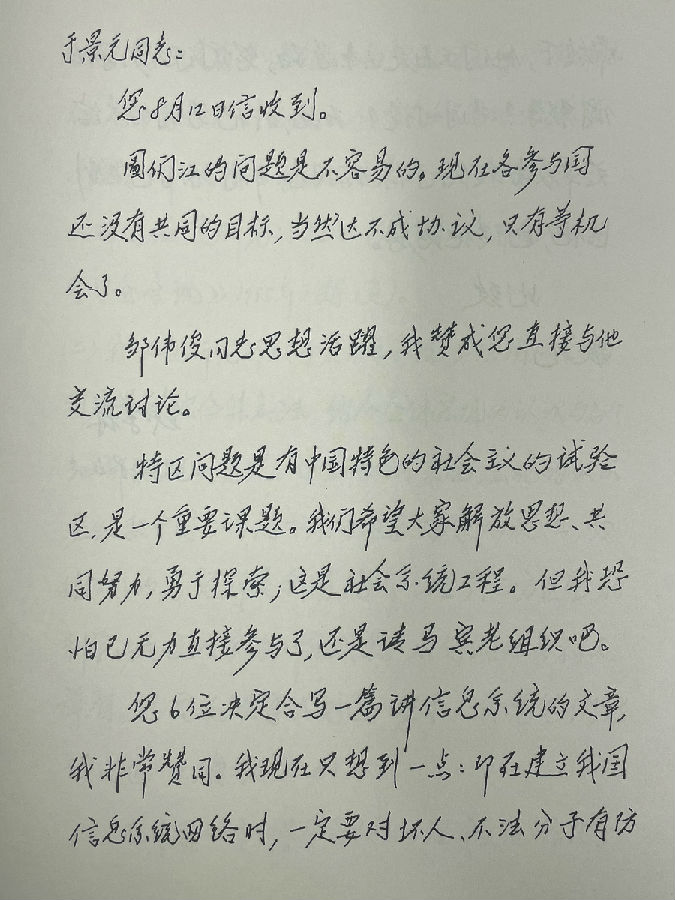 于景元同志：
您8月12日信收到。
图们江的问题是不容易的。现在各参与国
还没有共同的目标，当然达不成协议，只有等机
会了。
邹伟俊同志思想活跃，我赞成您直接与他
交流讨论。
特区问题是有中国特色的社会主义的试验
区，是一个重要课题。我们希望大家解放思想、共
同努力，勇于探索，这是社会系统工程。但我恐
怕已无力直接参与了，还是请马宾老组织吧。
您6位决定合写一篇讲信息系统的文章，
我非常赞同。我现在只想到一点：即在建立我国
信息系统网络时，一定要对坏人、不法分子有防